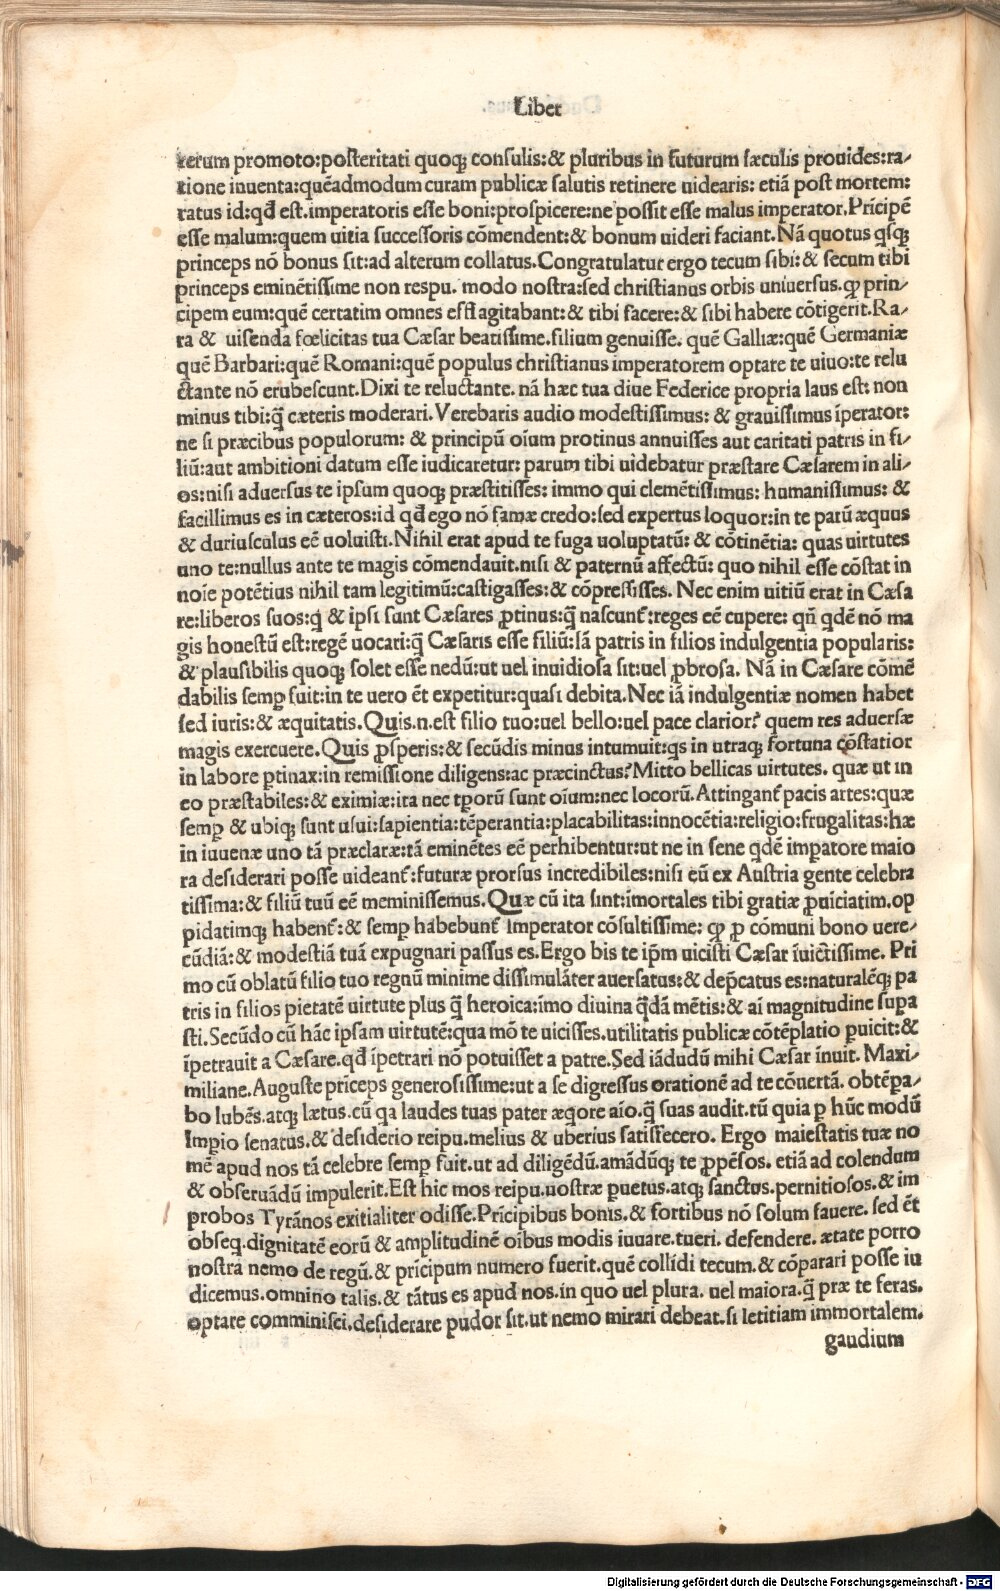 Liber
rerum promoto:posteritati quoqꝫ consulis:& pluribus in futurum sæculis prouides:ra-
tione inuenta:quēadmodum curam publicæ salutis retinere uidearis: etiā post mortem:
ratus id:qđ est.imperatoris esse boni:prospicere:ne possit esse malus imperator.Prīcipē
esse malum:quem uitia successoris cōmendent:& bonum uideri faciant.Nā quotus qsqꝫ
princeps nō bonus sit:ad alterum collatus.Congratulatur ergo tecum sibi:& secum tibi
princeps eminētissime non respu. modo nostra:sed christianus orbis uniuersus.ꝙ prin-
cipem eum:quē certatim omnes efflagitabant:& tibi facere:& sibi habere cōtigerit.Ra-
ra & uisenda fœlicitas tua Cæsar beatissime.filium genuisse. quē Galliæ:quē Germaniæ
quē Barbari:quē Romani:quē populus christianus imperatorem optare te uiuo:te relu
ctante nō erubescunt.Dixi te reluctante. nā hæc tua diue Federice propria laus est: non
minus tibi:q̄ cæteris moderari.Verebaris audio modestissimus: & grauissimus īperator:
ne si præcibus populorum: & principū oīum protinus annuisses aut caritati patris in fi-
liū:aut ambitioni datum esse iudicaretur: parum tibi uidebatur præstare Cæsarem in ali-
os:nisi aduersus te ipsum quoqꝫ præstitisses: immo qui clemētissimus: humanissimus: &
facillimus es in cæteros:id qđ ego nō famæ credo:sed expertus loquor:in te parū æquus
& duriusculus eē uoluisti.Nihil erat apud te fuga uoluptatū: & cōtinētia: quas uirtutes
uno te:nullus ante te magis cōmendauit.nisi & paternū affectū: quo nihil esse cōstat in
noīe potētius nihil tam legitimū:castigasses:& cōpressisses. Nec enim uitiū erat in Cæsa
re:liberos suos:q & ipsi sunt Cæsares ꝓtinus:q̄ nascunt̃:reges eē cupere: qñ qdē nō ma
gis honestū est:regē uocari:q̄ Cæsaris esse filiū:iā patris in filios indulgentia popularis:
& plausibilis quoqꝫ solet esse nedū:ut uel inuidiosa sit:uel ꝓbrosa. Nā in Cæsare cōmē
dabilis semꝑ fuit:in te uero ēt expetitur:quasi debita.Nec iā indulgentiæ nomen habet
sed iuris:& æquitatis.Quis.n.est filio tuo:uel bello:uel pace clarior? quem res aduersæ
magis exercuere.Quis ꝓsperis:& secūdis minus intumuit:qs in utraqꝫ fortuna cōstatior
in labore ꝑtinax:in remissione diligens:ac præcinctus?Mitto bellicas uirtutes. quæ ut in
eo præstabiles:& eximiæ:ita nec tꝑorū sunt oīum:nec locorū.Attingant̃ pacis artes:quæ
semꝑ & ubiqꝫ sunt usui:sapientia:tēperantia:placabilitas:innocētia:religio:frugalitas:hæ
in iuuenæ uno tā præclaræ:tā eminētes eē perhibentur:ut ne in sene qdē imꝑatore maio
ra desiderari posse uideant̃:futuræ prorsus incredibiles:nisi eū ex Austria gente celebra
tissima:& filiū tuū eē meminissemus.Quæ cū ita sint:imortales tibi gratiæ ꝓuīciatim.op
pidatimqꝫ habent̃:& semꝑ habebunt̃ Imperator cōsultissime: ꝙ ꝓ cōmuni bono uere-
cūdiā:& modestiā tuā expugnari passus es.Ergo bis te ipm̄ uicisti Cæsar īuictissime. Pri
mo cū oblatū filio tuo regnū minime dissimulāter auersatus:& dep̄catus es:naturalēqꝫ pa
tris in filios pietatē uirtute plus q̄ heroica:īmo diuina q̄dā mētis:& aī magnitudine supa
sti.Secūdo cū hāc ipsam uirtutē:qua mō te uicisses.utilitatis publicæ cōtēplatio ꝑuicit:&
īpetrauit a Cæsare.qđ īpetrari nō potuisset a patre.Sed iādudū mihi Cæsar īnuit. Maxi-
miliane.Auguste prīceps generosissime:ut a se digressus orationē ad te cōuertā. obtēpa-
bo lubēs.atqꝫ lætus.cū qa laudes tuas pater æqore aīo.q̄ suas audit.tū quia ꝑ hūc modū
Impio senatus.& desiderio reipu.melius & uberius satisfecero. Ergo maiestatis tuæ no
mē apud nos tā celebre semꝑ fuit.ut ad diligēdū.amādūqꝫ te ꝓpēsos. etiā ad colendum
& obseruādū impulerit.Est hic mos reipu.nostræ ꝑuetus.atqꝫ sanctus.pernitiosos.& im
probos Tyrānos exitialiter odisse.Prīcipibus bonis.& fortibus nō solum fauere. sed ēt
obseq.dignitatē eorū & amplitudinē oībus modis iuuare.tueri. defendere. ætate porro
nostra nemo de regū.& prīcipum numero fuerit.quē collidi tecum.& cōparari posse iu
dicemus.omnino talis.& tātus es apud nos.in quo uel plura. uel maiora.q̄ præ te feras.
optare comminisci.desiderare pudor sit.ut nemo mirari debeat.si letitiam immortalem.
gaudium
Digitalisierung gefördert durch die Deutsche Forschungsgemeinschaft - DFG